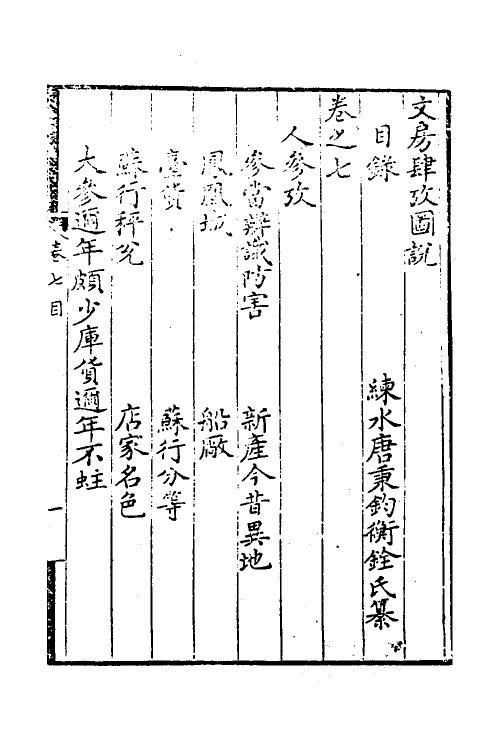 文房肆攷圖說
目錄　練水唐秉鈞衡銓氏纂
卷之七
人參攷
參當辨識防害　新產今昔異地
鳳凰城　船廠
臺貨　蘇行分等
蘇行秤兌　店家名色
大參邇年頗少庫貨邇年不蛀
卷七目
一